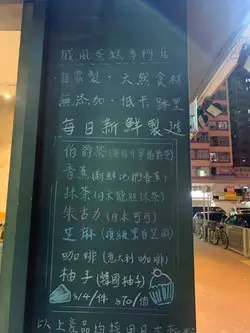 戚風蛋糕專門店
·自家製·天然食材
無添加·低卡路里
每日新鮮製造
伯爵茶(英國川寧伯爵茶)
香蕉(新鮮地捫香蕉)
抹茶(日本龍胆抹茶)
朱古力(日本可可)
芝麻(頂級黑白芝麻)
咖啡(意大利咖啡)
柚子(韓國柚子)
$14/件 $70/個
以上產品均採用日本